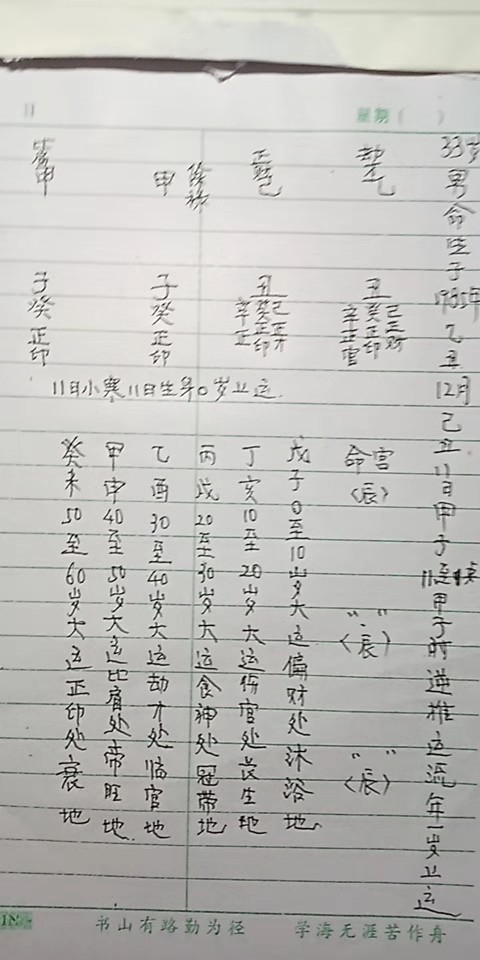 星期（ ）
33岁男命生于1985年乙丑12月己丑11日甲子11至1点甲子时逆推运流年一岁上运
劫才
乙
丑
己正财
癸正印
辛正官
命宫
〈辰〉
〃 〃
〈辰〉
〃 〃
〈辰〉
正财
己
丑
己正才
癸正印
辛正
日元
甲
子
癸
正印
甲
子
癸
正印
11日小寒11日生第0岁上运
戊子0至10岁大运偏财处沐浴地
丁亥10至20岁大运伤官处长生地
丙戌20至30岁大运食神处冠带地
乙酉30至40岁大运劫才处临官地
甲申40至50岁大运比肩处帝旺地
癸未50至60岁大运正印处衰地
书山有路勤为径 学海无涯苦作舟